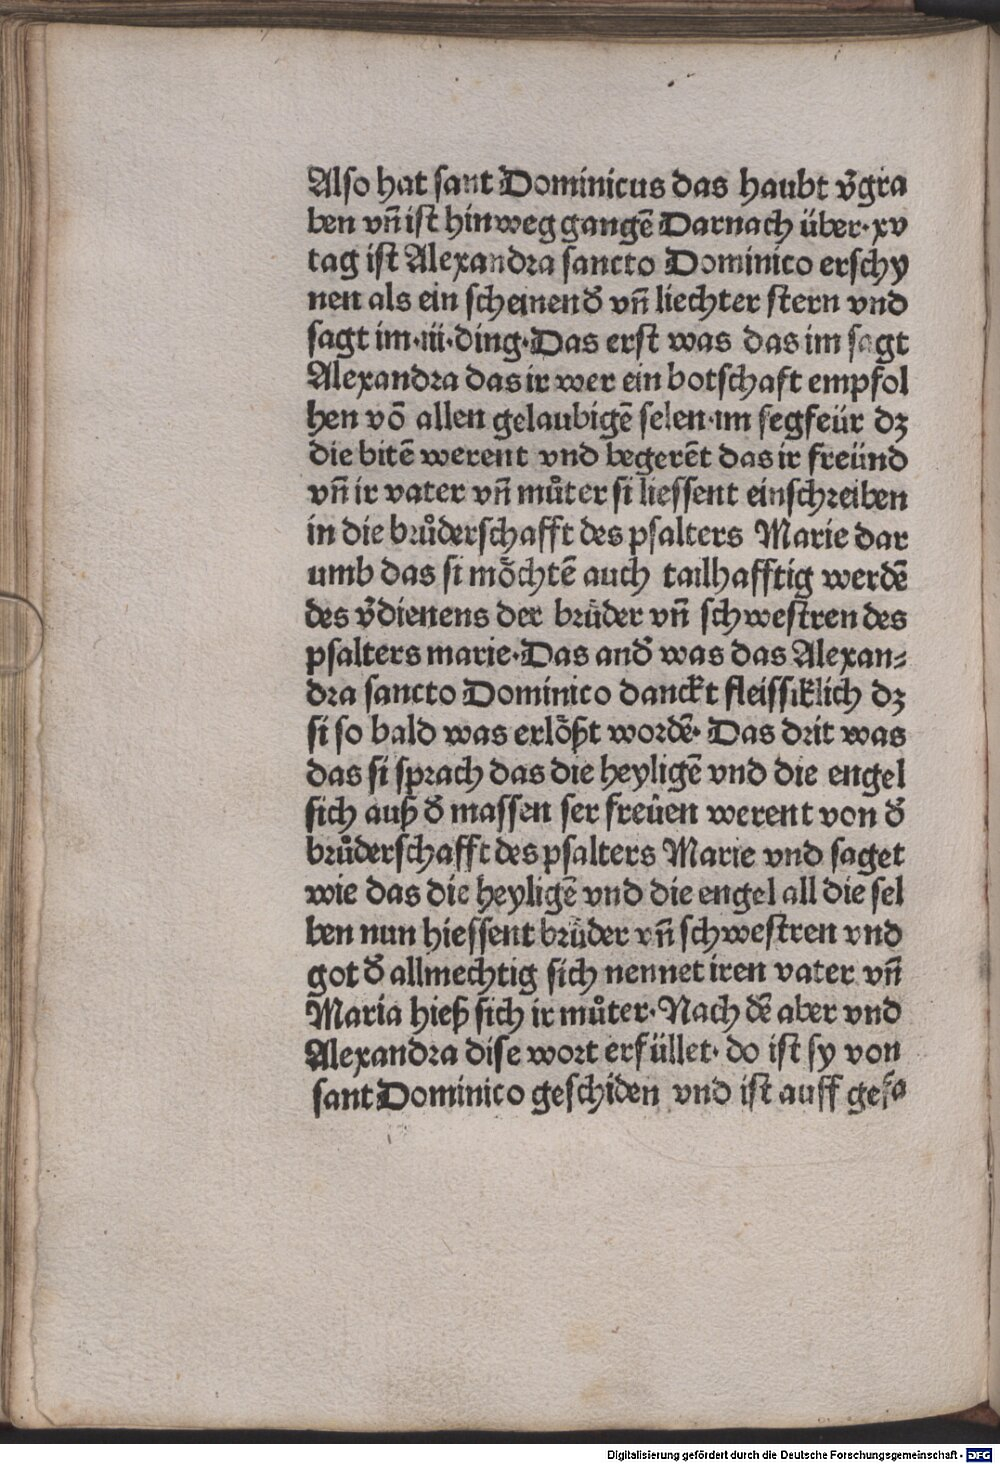 Also hat sant Dominicus das haubt v̄gra
ben vn̄ ist hinweg gangē Darnach über·xv
tag ist Alexandra sancto Dominico erschy
nen als ein scheinend̄ vn̄ liechter stern vnd
sagt im·iii·ding·Das erst was das im sagt
Alexandra das ir wer ein botschaft empfol
hen vō allen gelaubigē selen·im segfeür dz
die bitē werent vnd begerēt das ir freünd
vn̄ ir vater vn̄ můter si liessent einschreiben
in die brůderschafft des psalters Marie dar
umb das si möchtē auch tailhafftig werdē
des v̄dienens der brüder vn̄ schwestren des
psalters marie·Das and̄ was das Alexan⸗
dra sancto Dominico danckt fleissiklich dz
si so bald was erlößt wordē· Das drit was
das si sprach das die heyligē vnd die engel
sich auß d̄ massen ser freüen werent von d̄
brůderschafft des psalters Marie vnd saget
wie das die heyligē vnd die engel all die sel
ben nun hiessent brüder vn̄ schwestren vnd
got d̄ allmechtig sich nennet iren vater vn̄
Maria hieß sich ir můter·Nach dē aber vnd
Alexandra dise wort erfüllet· do ist sy von
sant Dominico geschiden vnd ist auff gefa
Digitalisierung gefördert durch die Deutsche Forschungsgemeinschaft - DFG